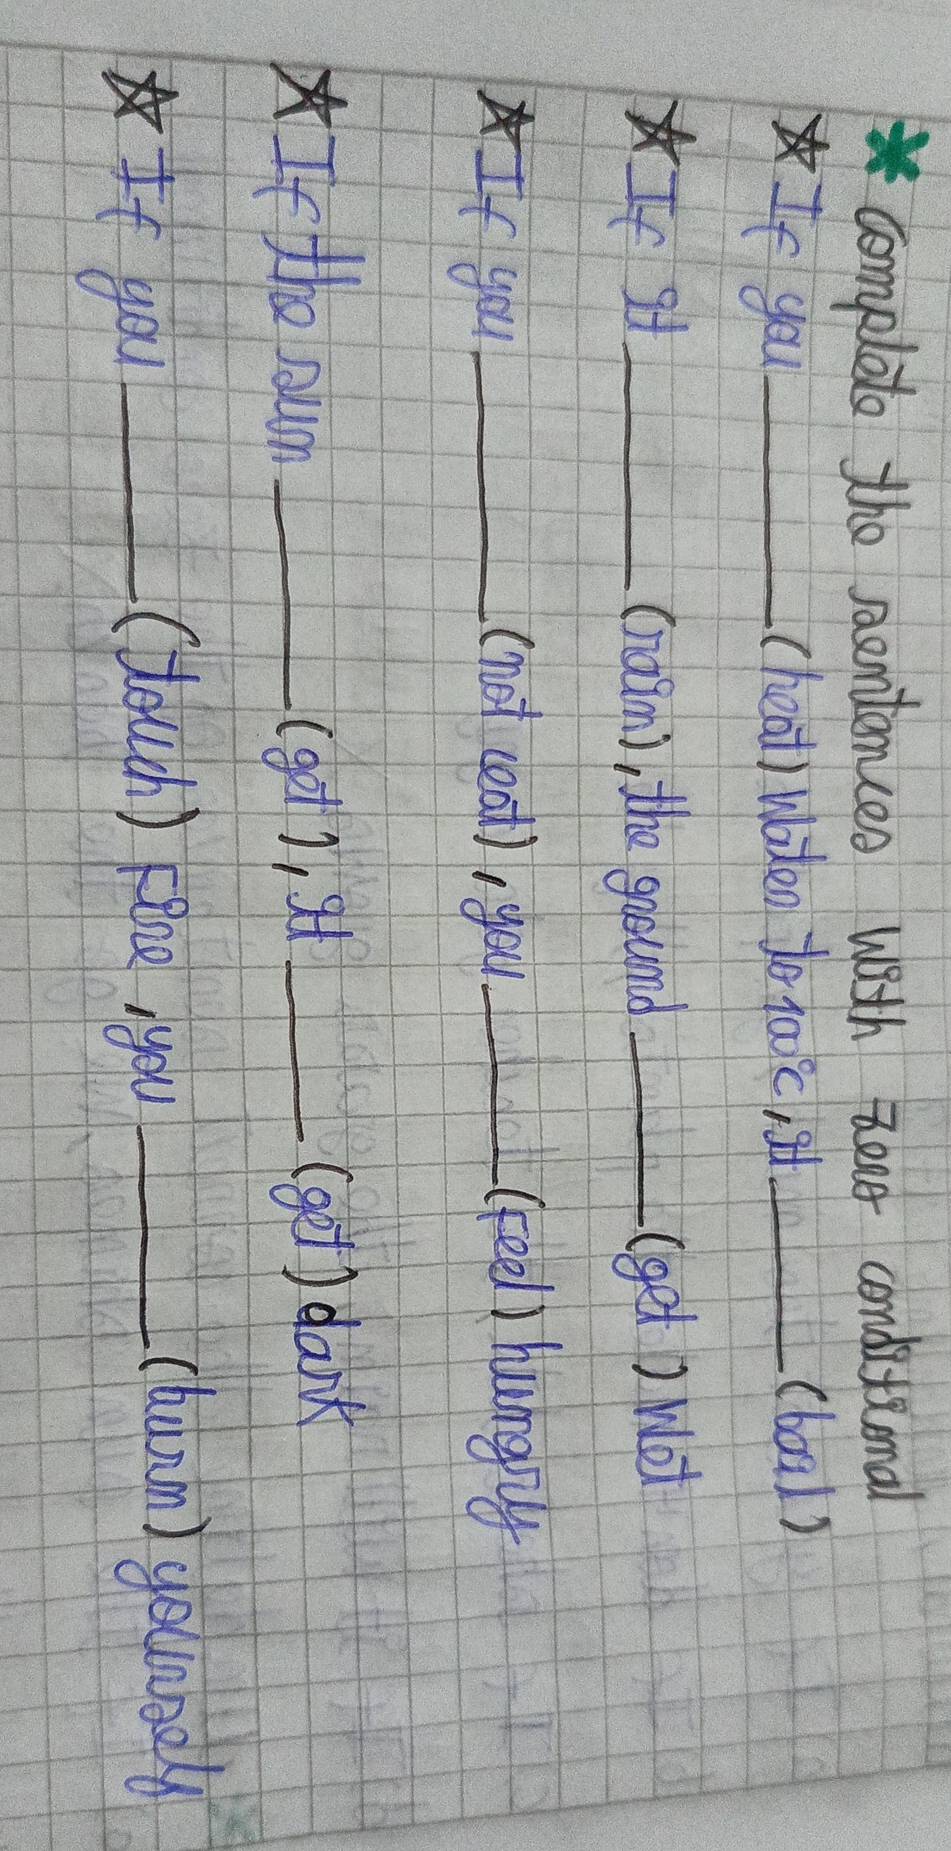 * Complete the sentences with zero conditional
☆ If you ______ (heat) water to 100°c, it ______ (boil)
☆ If it ______ (rain), the ground ______ (get) wet
☆ If you ______ (not eat), you ______ (feel) hungry
☆ If the sun ______ (get), it ______ (get) dark
☆ If you ______ (touch) fire, you ______ (burn) yourself